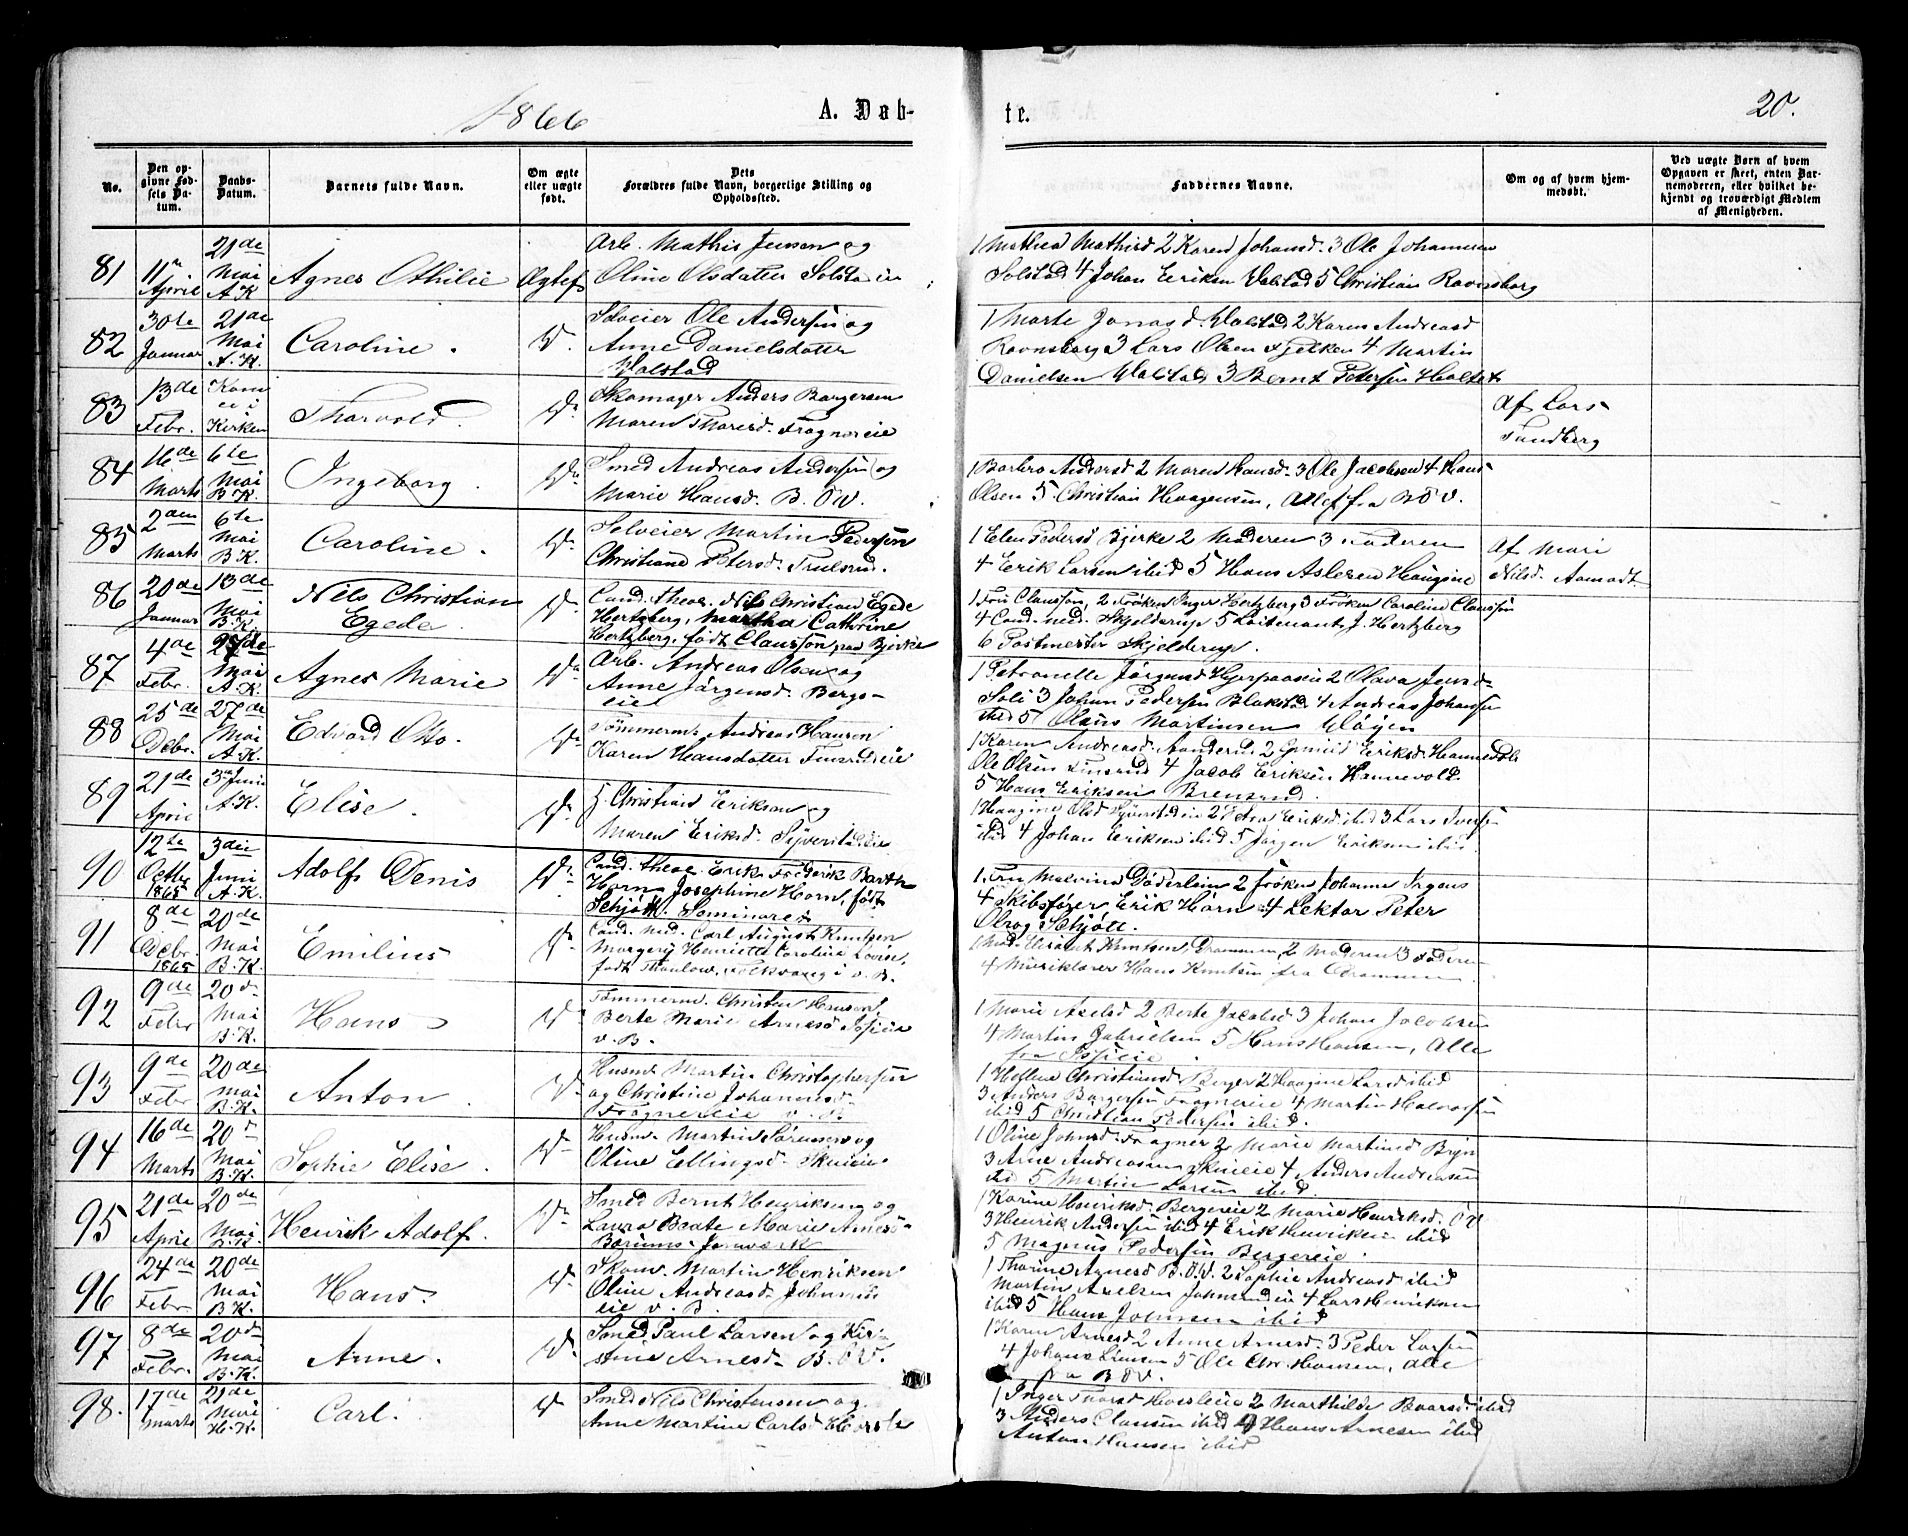 1866
A. Døb-
te.
20.
No.
Den op-
givne Fød-
sels Da-
tum.
Daabs-
Datum.
Barnets fulde Navn.
Om ægte
eller uægte
født.
Dets
Forældres fulde Navn, borgerlige Stilling og
Opholdssted.
Faddernes Navne.
Om og af hvem hjem-
medøbt.
Ved uægte Børn af hvem
Opgaven er skeet, enten Bar-
nemoderen, eller hvilket be-
kjendt og troværdigt Medlem
af Menigheden.
81
11te
April
21de
Mai
A.K
Agnes Othilie
Ægtef
Arb. Mathis Jensen og
Oline Olsdatter Solstadeie
1 Mathea Mathisd 2 Karen Johansd. 3 Ole Johannesen
Solstad 4 Johan Eriksen Valstad 5 Christian Ravnsborg
82
30te
Januar
21de
Mai
A.K.
Caroline.
D.
Selveier Ole Andersen og
Anne Danielsdatter
Valstad
1 Marte Jonasd. Valstad 2 Karen Andreasd
Ravnsborg 3 Lars Olsen 4 Martin
Danielsen Valstad 3 Bernt Petersen
83
13de
Febr.
Kom
ei i
Kirken
Tharvald.
Do
Skomager Anders Borgersen
Maren Thorsd. Frognereie
Af Lars
Tundberg
84
16de
Marts
6te
Mai
B.K.
Ingeborg.
Do
Smed Andreas Andersen og
Marie Hansd. B.ØV.
1 Barbro Andersd 2 Maren Hansd. 3 Ole Jacobsen 4 Hans
Olsen 5 Christian Haagensen, Alle fra BØV.
85
2den
Marts
6te
Mai
B.K.
Caroline.
Do
Selveier Martin Pedersen
Christiane Petersd. Trulsrud.
1 Elen Pedersd Bjerke 2 Moderen 3 Faderen
4 Erik Larsen ibid 5 Hans Aslesen Haugene
Af Mari
Nilsd. Aamodt
86
20de
Januar
13de
Mai
B.K.
Nils Christian
Egede.
Do
Cand. theol. Nils Christian Egede
Hertzberg, Martha Cathrine
Hertzberg, født Claussøn, paa Bjerke
1 Fru Claussøn, 2 Frøken Inger Hertzberg 3 Frøken Caroline Claussøn
4 Cand. med. Skjelderup 5 Leitenant J. Hertzberg
6 Postmester Skjelderup.
87
4de
Febr.
27de
Mai
A.K.
Agnes Marie
Do
Arb. Andreas Olsen og
Anne Jørgensd. Bergs-
eie
1 Petronelle Jørgensd 2 Olava Jensd.
Soli 3 Johan Pedersen Blakstd 4 Andreas Johansen
ibid 5 Olaus Martinsen Vøyen
88
25de
Debr.
27de
Mai
A.K.
Edvard Otto.
Do
Tømmerm. Andreas Hansen
Karen Hansdatter Finsrudeie
1 Karen Andreasd. 2 Eriksd. Hannevold
Ole Olsen Finsrud 4 Jacob Eriksen Hannevold.
5 Hans Eriksen Brensrud.
89
21de
April
3die Juni
A.K.
Elise.
Do
G. Christian Eriksen og
Maren Eriksd. Syverstadeie
1 Haagine Olsd Syverstadeie 2 Petra Eriksd ibid 3 Lars Iversen
ibid 4 Johan Eriksen ibid 5 Jørgen Eriksen ibid.
90
12te
Octbr
1865
3die
Juni
A.K.
Adolf Denis
Do
Cand. theol. Erik Frederik Barth
Horn, Josephine Horn, født
Schjøtt. Seminariet
1. Fru Malvina Døderlein 2 Frøken Johanne Irgens
4 Skibsfører Erik Horn 4 Lektor Peter
Olrog Schjøtt.
91
8de
Debr.
1865
20de
Mai
B.K.
Emilius
Do
Cand. med. Carl August Knutzen
Margery Henriette Caroline Lovise,
født Thaulow, Folkvang i v. B.
1 Mad. Knutsen, Drammen, 2 Moderen 3 Faderen
4 Musiklærer Hans Knutsen fra Drammen
92
9de
Febr
20de
Mai
B.K.
Hans
Do
Tømmerm. Christen Hansen,
Berte Marie Arnesd
v. B.
1 Marie Axelsd 2 Berte Jacobsd 3 Johan Jacobsen
4 Martin Gabrielsen 5 Hans Hansen, Alle
fra
93
9de
Febr
20de
Mai
B.K.
Anton.
Do
Husm. Martin Christophersen
og Christine Johannesd.
Frognereie v. B
1 Hellene Christiansd. Berger 2 Haagine Larsd ibid
3 Anders Borgersen Frognereie 4 Martin Halvorsen
ibid 5 Christian Pedersen ibid.
94
16de
Marts
20de
Mai
B.K.
Sophie Elise.
Do
Husm. Martin Sørensen og
Oline Ellingsd. Skuieie
1 Oline Johnsd. Frogner 2 Marie Martinsd Bryn
3 Arne Andreasen Skuieie 4 Anders Andreasen
ibid 5 Martin Larsen ibid.
95
21de
April
20de
Mai
B.K
Henrik Adolf.
Do
Smed Bernt Henriksen og
Laura Beate Marie Arnesd.
Bærums Jernværk
1 Karine Henriksd. Bergereie 2 Marie Henriksd. ØV
3 Henrik Andersen ibid 4 Erik Henriksen ibid
5 Magnus Pedersen Bergereie.
96
24de
Febr
20de
Mai
B.K.
Hans.
Do
Skom. Martin Henriksen
Oline Andreasd.
eie v. B.
1 Tharine Arnesd B.ØV. 2 Sophie Andreasd ibid
Martin Axelsen 4 Lars Henriksen
ibid 5 Hans Johnsen ibid
97
8de
Febr.
20de
Mai
B.K.
Anne.
Do
Smed Paul Larsen og Kir-
stine Arnesd. B.ØV.
1 Karen Arnesd 2 Anne Arnesd. 3 Peder Larsen
4 Johans Linesen 5 Ole Chr. Hansen, alle
fra BØV.
98.
17de
Marts
21de
Mai
H.K.
Carl.
Do
Smed Nils Christensen og
Anne Martine Carlsd
1 Inger 2 Marthilde ibid
3 Anders Clausen ibid 4 Hans Arnesen ibid
Anton Hansen ibid